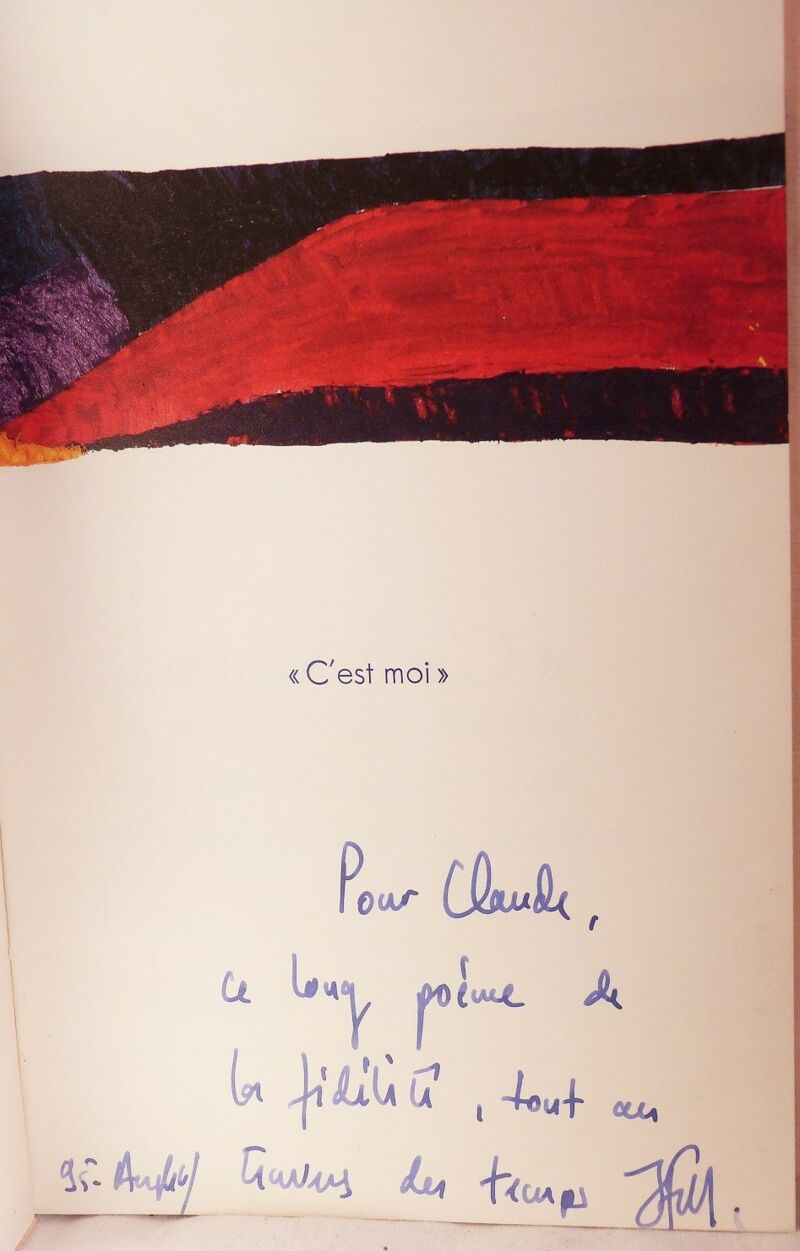 « C'est moi »
Pour Claude,
ce long poème de
la fidélité, tout au
95- travers des temps